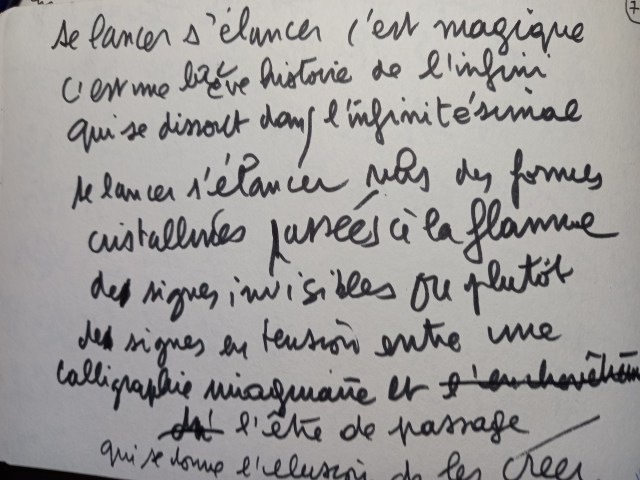 se lancer s'élancer c'est magique
c'est une brève histoire de l'infini
qui se dissout dans l'infinitésimal
se lancer s'élancer vers des formes
cristallisées passées à la flamme
des signes invisibles ou plutôt
des signes en tension entre une
calligraphie imaginaire et
l'être de passage
qui se donne l'illusion de les créer
7